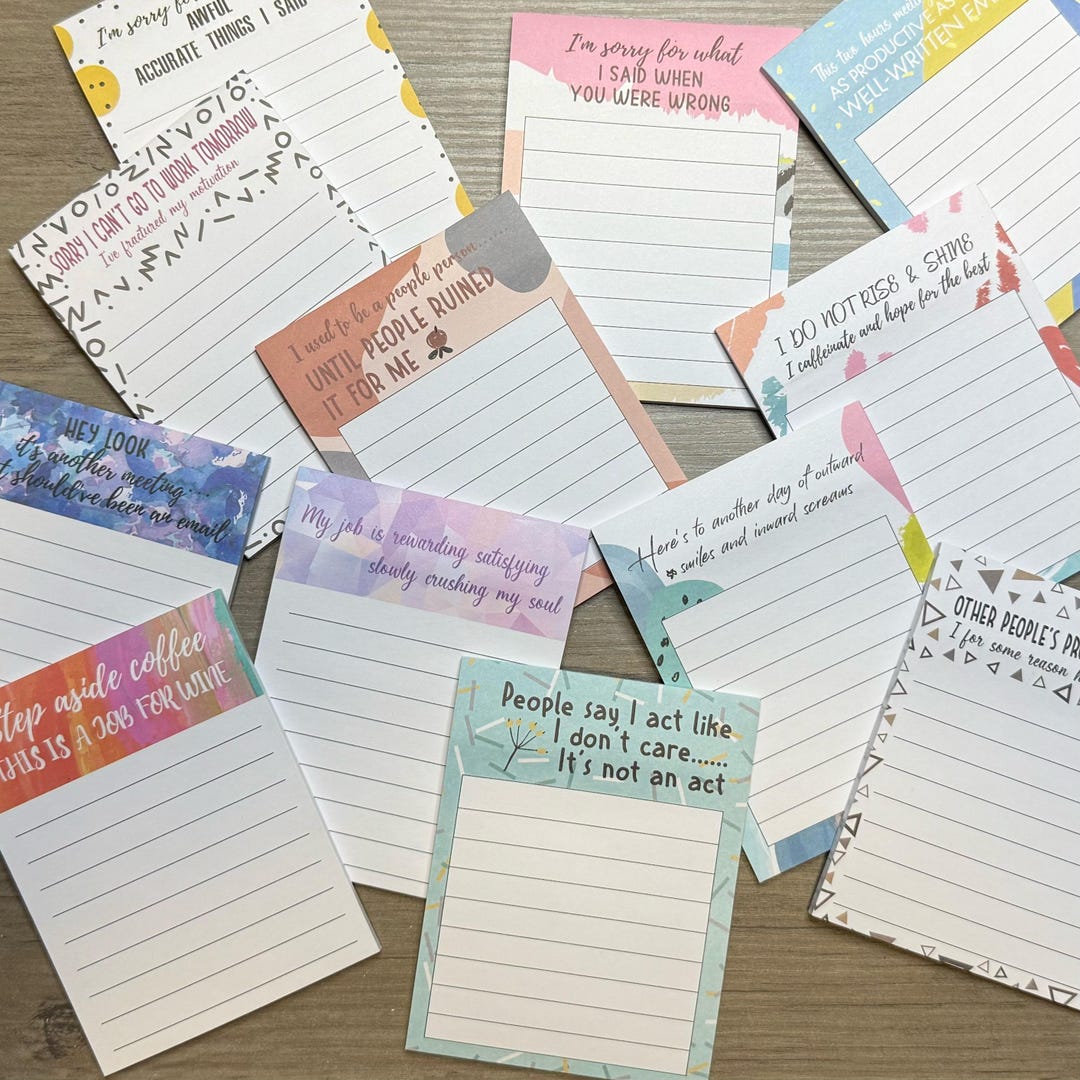 I'm sorry for
AWFUL
ACCURATE THINGS I SAID
I'm sorry for what
I SAID WHEN
YOU WERE WRONG
This two hours
AS PRODUCTIVE AS
WELL-WRITTEN
SORRY I CAN'T GO TO WORK TOMORROW
I've fractured my motivation
I used to be a people person......
UNTIL PEOPLE RUINED
IT FOR ME
I DO NOT RISE & SHINE
I caffeinate and hope for the best
HEY LOOK
it's another meeting...
should've been an email
My job is rewarding satisfying
slowly crushing my soul
Here's to another day of outward
smiles and inward screams
OTHER PEOPLE'S
I for some reason
Step aside coffee
THIS IS A JOB FOR WINE
People say I act like
I don't care......
It's not an act